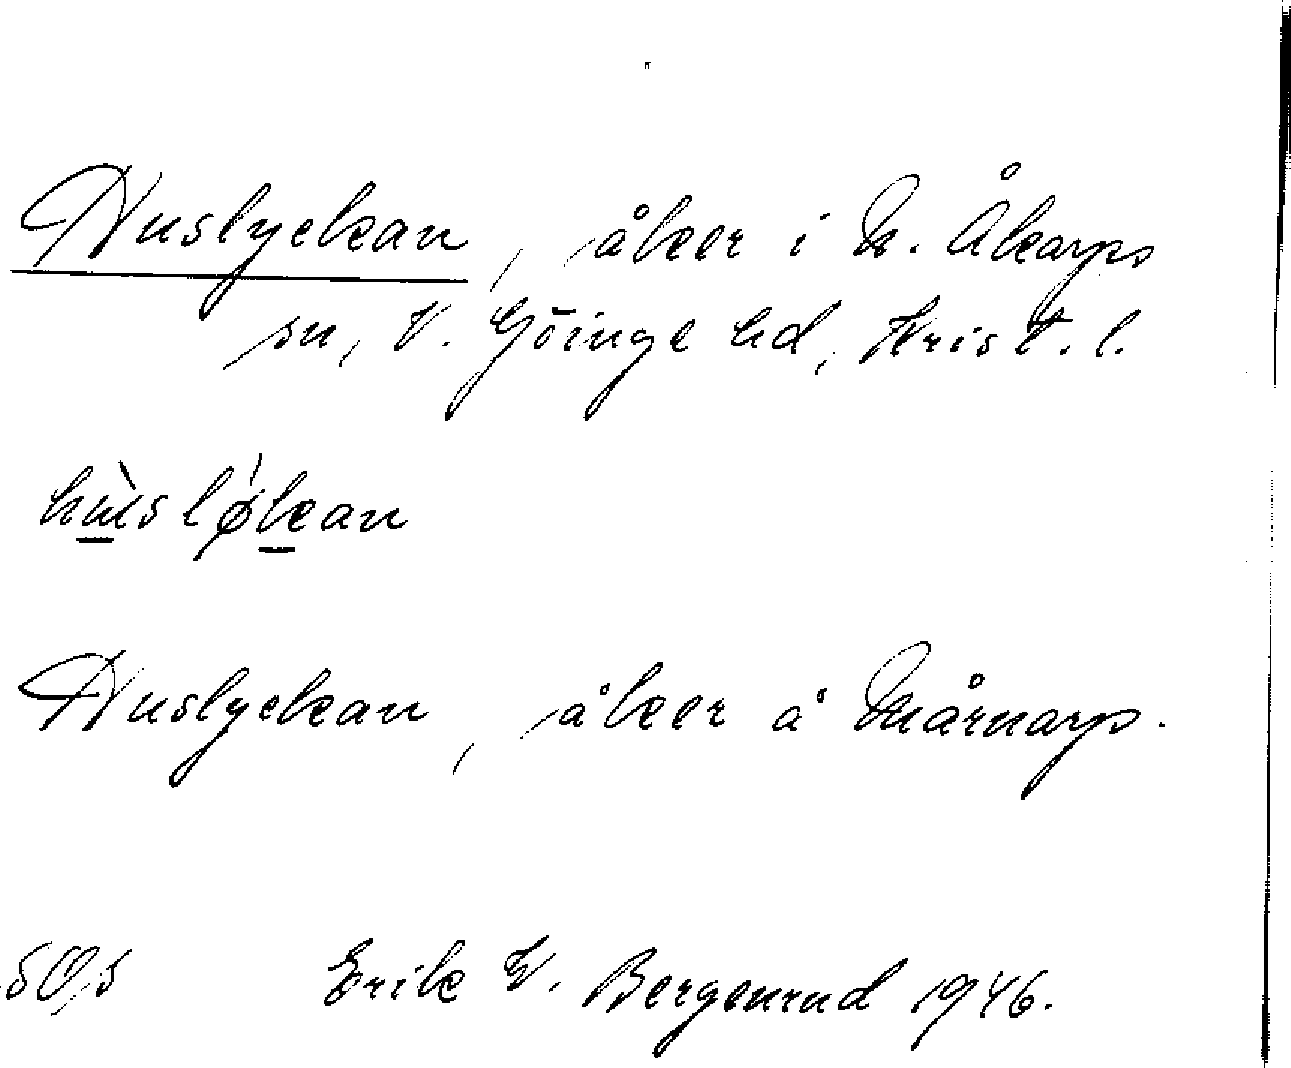 Huslyckan, åker i N. Åkarps
sn, V. Göinge hd, Krist. l.
hùsløkan
Huslyckan, åker å Mårnarp.
50,5 Erik V. Bergenrud 1946.